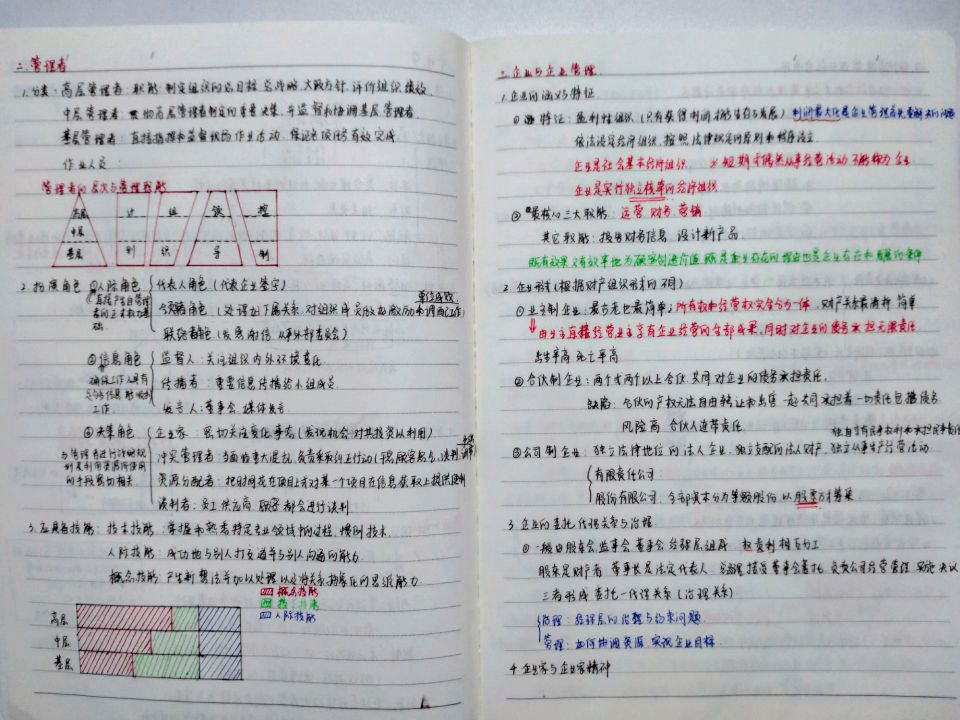 二.管理者
1.分类:高层管理者:职能:制定组织的总目标、总战略、大政方针、评价组织绩效
中层管理者:贯彻高层管理者制定的重要决策,并监督和协调基层管理者
基层管理者:直接指挥和监督现场作业活动,保证各项任务有效完成
作业人员:
管理者的层次与管理职能
高层 计 组 领 控
中层
基层 划 织 导 制
2.扮演角色 ①人际角色 代表人角色(代表企业签字)
直接产自管理者的正式权力基础
领导者角色(处理上下层关系,对组织成员激励
联络者角色
②信息角色 监督人:关注组织内外环境
确保工作人员有足够信息
工作
传播者:重要信息传播给小组成员
发言人:董事会、媒体发言
③决策角色 企业家:密切关注变化事态(发现机会,对其投资以利用)
冲突管理者:
资源分配者:把时间花在项目上
谈判者:员工、供应商、顾客都会进行谈判
3.应具备技能:技术技能:掌握和熟悉特定专业领域中的过程、惯例、技术
人际技能:成功地与别人打交道并与别人沟通的能力
概念技能:产生新想法并加以处理,以及将关系抽象化的思维能力
概念技能
技术技能
人际技能
高层
中层
基层
三.企业与企业管理
1.企业的涵义与特征
①特征:盈利性组织(只有获得利润,才能生存与发展)利润最大化是企业管理者首要解决的问题
依法设定经济组织,按照法律规定的原则和程序设立
企业是社会基本经济组织 ※短期或偶然从事经营活动不能称为企业
企业是实行独立核算的经济组织
②最核心三大职能:运营、财务、营销
其它职能:报告财务信息、设计新产品
既有效果又有效率地为顾客创造价值,既是企业存在的理由也是企业存在和发展的条件
2.企业形式(根据财产组织形式的不同)
①业主制企业:最古老也最简单;所有权和经营权完全合为一体,财产关系最清晰、简单
由业主直接经营,业主享有企业经营的全部成果,同时对企业的债务承担无限责任
出生率高,死亡率高
②合伙制企业:两个或两个以上合伙,共同对企业的债务承担责任
缺陷:合伙的产权无法自由转让和出售,一起共同承担着一切责任包括债务
风险高 合伙人连带责任
独自享有民事权利和承担民事责任
③公司制企业:独立法律地位的法人企业,独立支配的法人财产,独立从事生产经营活动
有限责任公司:
股份有限公司:全部资本分为等额股份,以股票方式筹集
3.企业的委托代理关系与治理
①一般由股东会、监事会、董事会、经理层组成 权责利相互分工
股东是财产者 董事长是法定代表人 总经理接受董事会委托,负责公司经营责任,实施决议
三者形成委托—代理关系(治理关系)
治理:经理层的治理与约束问题
管理:如何协调资源,实现企业目标
4.企业家与企业家精神